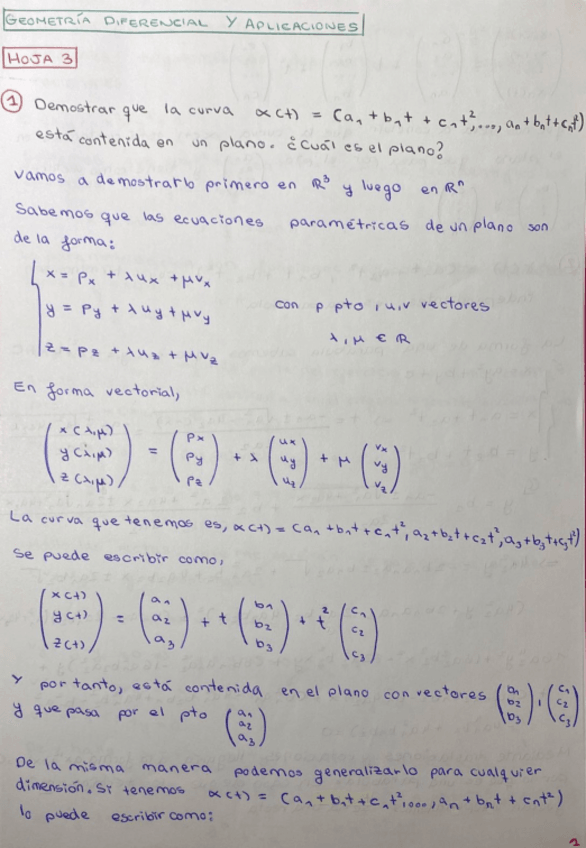 GEOMETRÍA DIFERENCIAL Y APLICACIONES
HOJA 3
① Demostrar que la curva α(t) = (a₁ + b₁t + c₁t², ..., aₙ + bₙt + cₙt²)
está contenida en un plano. ¿Cuál es el plano?
Vamos a demostrarlo primero en ℝ³ y luego en ℝⁿ
Sabemos que las ecuaciones paramétricas de un plano son
de la forma:
x = pₓ + λuₓ + μvₓ
y = p_y + λu_y + μv_y con p pto, u,v vectores
z = p_z + λu_z + μv_z λ, μ ∈ ℝ
En forma vectorial,
(x(λ,μ) y(λ,μ) z(λ,μ)) = (pₓ p_y p_z) + λ (uₓ u_y u_z) + μ (vₓ v_y v_z)
La curva que tenemos es, α(t) = (a₁ + b₁t + c₁t², a₂ + b₂t + c₂t², a₃ + b₃t + c₃t²)
se puede escribir como,
(x(t) y(t) z(t)) = (a₁ a₂ a₃) + t (b₁ b₂ b₃) + t² (c₁ c₂ c₃)
Y por tanto, está contenida en el plano con vectores (b₂ b₃), (c₁ c₂ c₃)
y que pasa por el pto (a₁ a₂ a₃)
De la misma manera podemos generalizarlo para cualquier
dimensión. Si tenemos α(t) = (a₁ + b₁t + c₁t², ..., aₙ + bₙt + cₙt²)
lo puede escribir como:
1